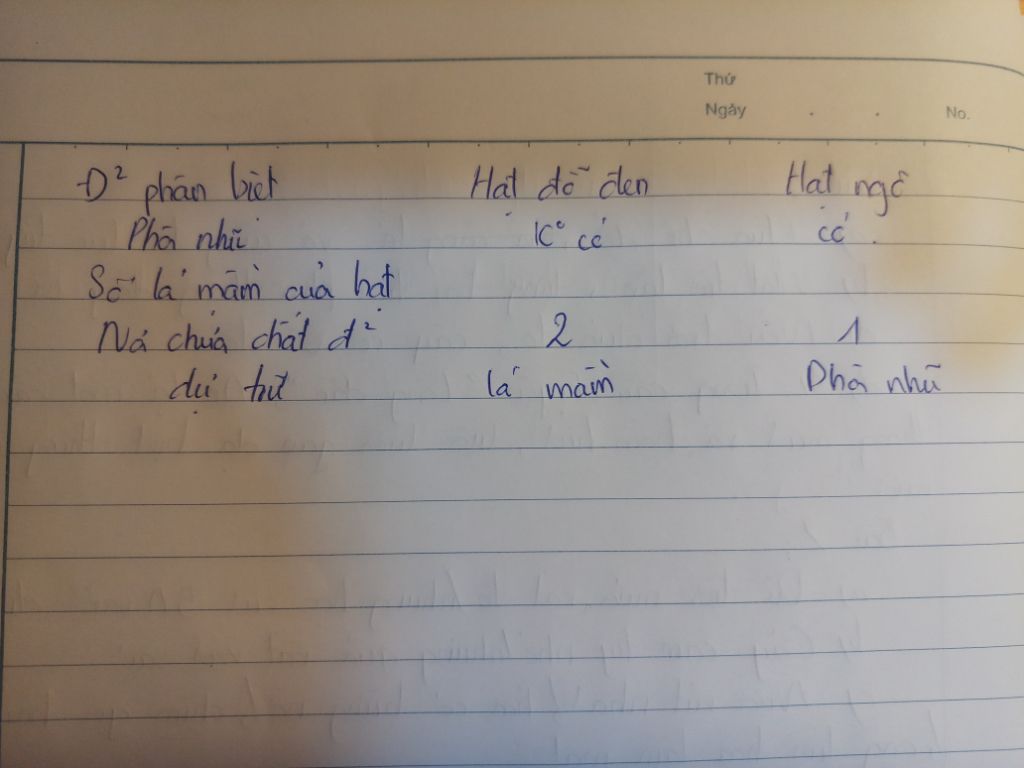 Thứ
Ngày . . No.
Đ² phân biệt Hạt đỗ đen Hạt ngô
Phôi nhũ K° có có.
Số lá mầm của hạt
Nơi chứa chất d² 2 1
dự trữ lá mầm Phôi nhũ